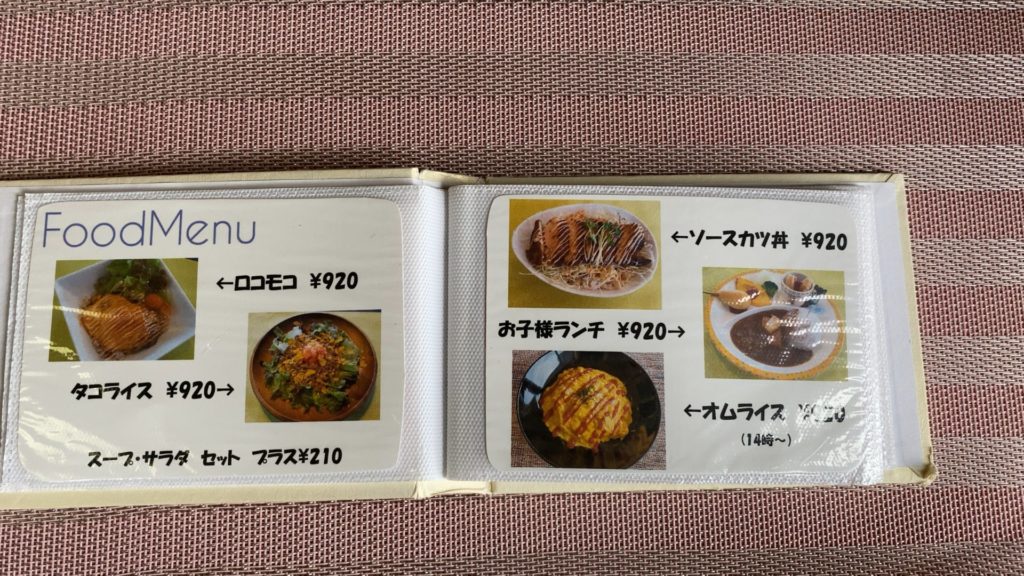 FoodMenu
←ロコモコ ¥920
タコライス ¥920→
スープ・サラダ セット プラス¥210
←ソースカツ丼 ¥920
お子様ランチ ¥920→
←オムライス ¥920
(14時~)